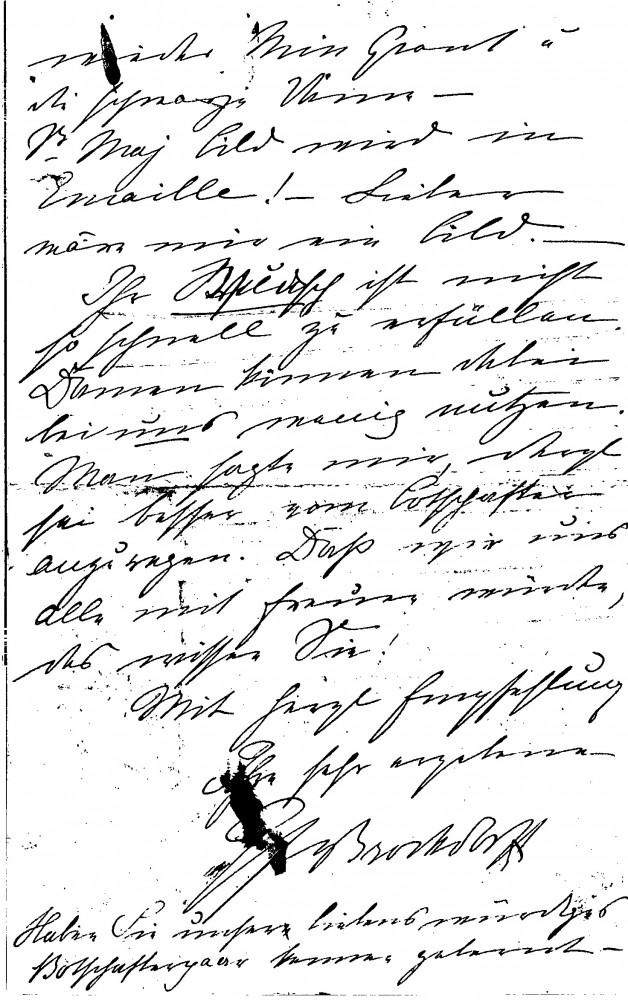 wieder Min Grant u
die schwarze
Sr Maj Bild wird in
Emaille! – Lieber
wäre mir ein Bild. –
Ihr Wunsch ist nicht
so schnell zu erfüllen.
Damen können dabei
bei uns wenig nutzen.
Man sagte mir, dergl
sei besser vom Botschafter
anzuregen. Daß wir uns
alle mit freuen würden,
das wissen Sie!
Mit herzl Empfehlung
Ihre sehr ergebene
Brockdorff
Haben Sie unsere liebenswürdiges
Botschafterpaar kennen gelernt –